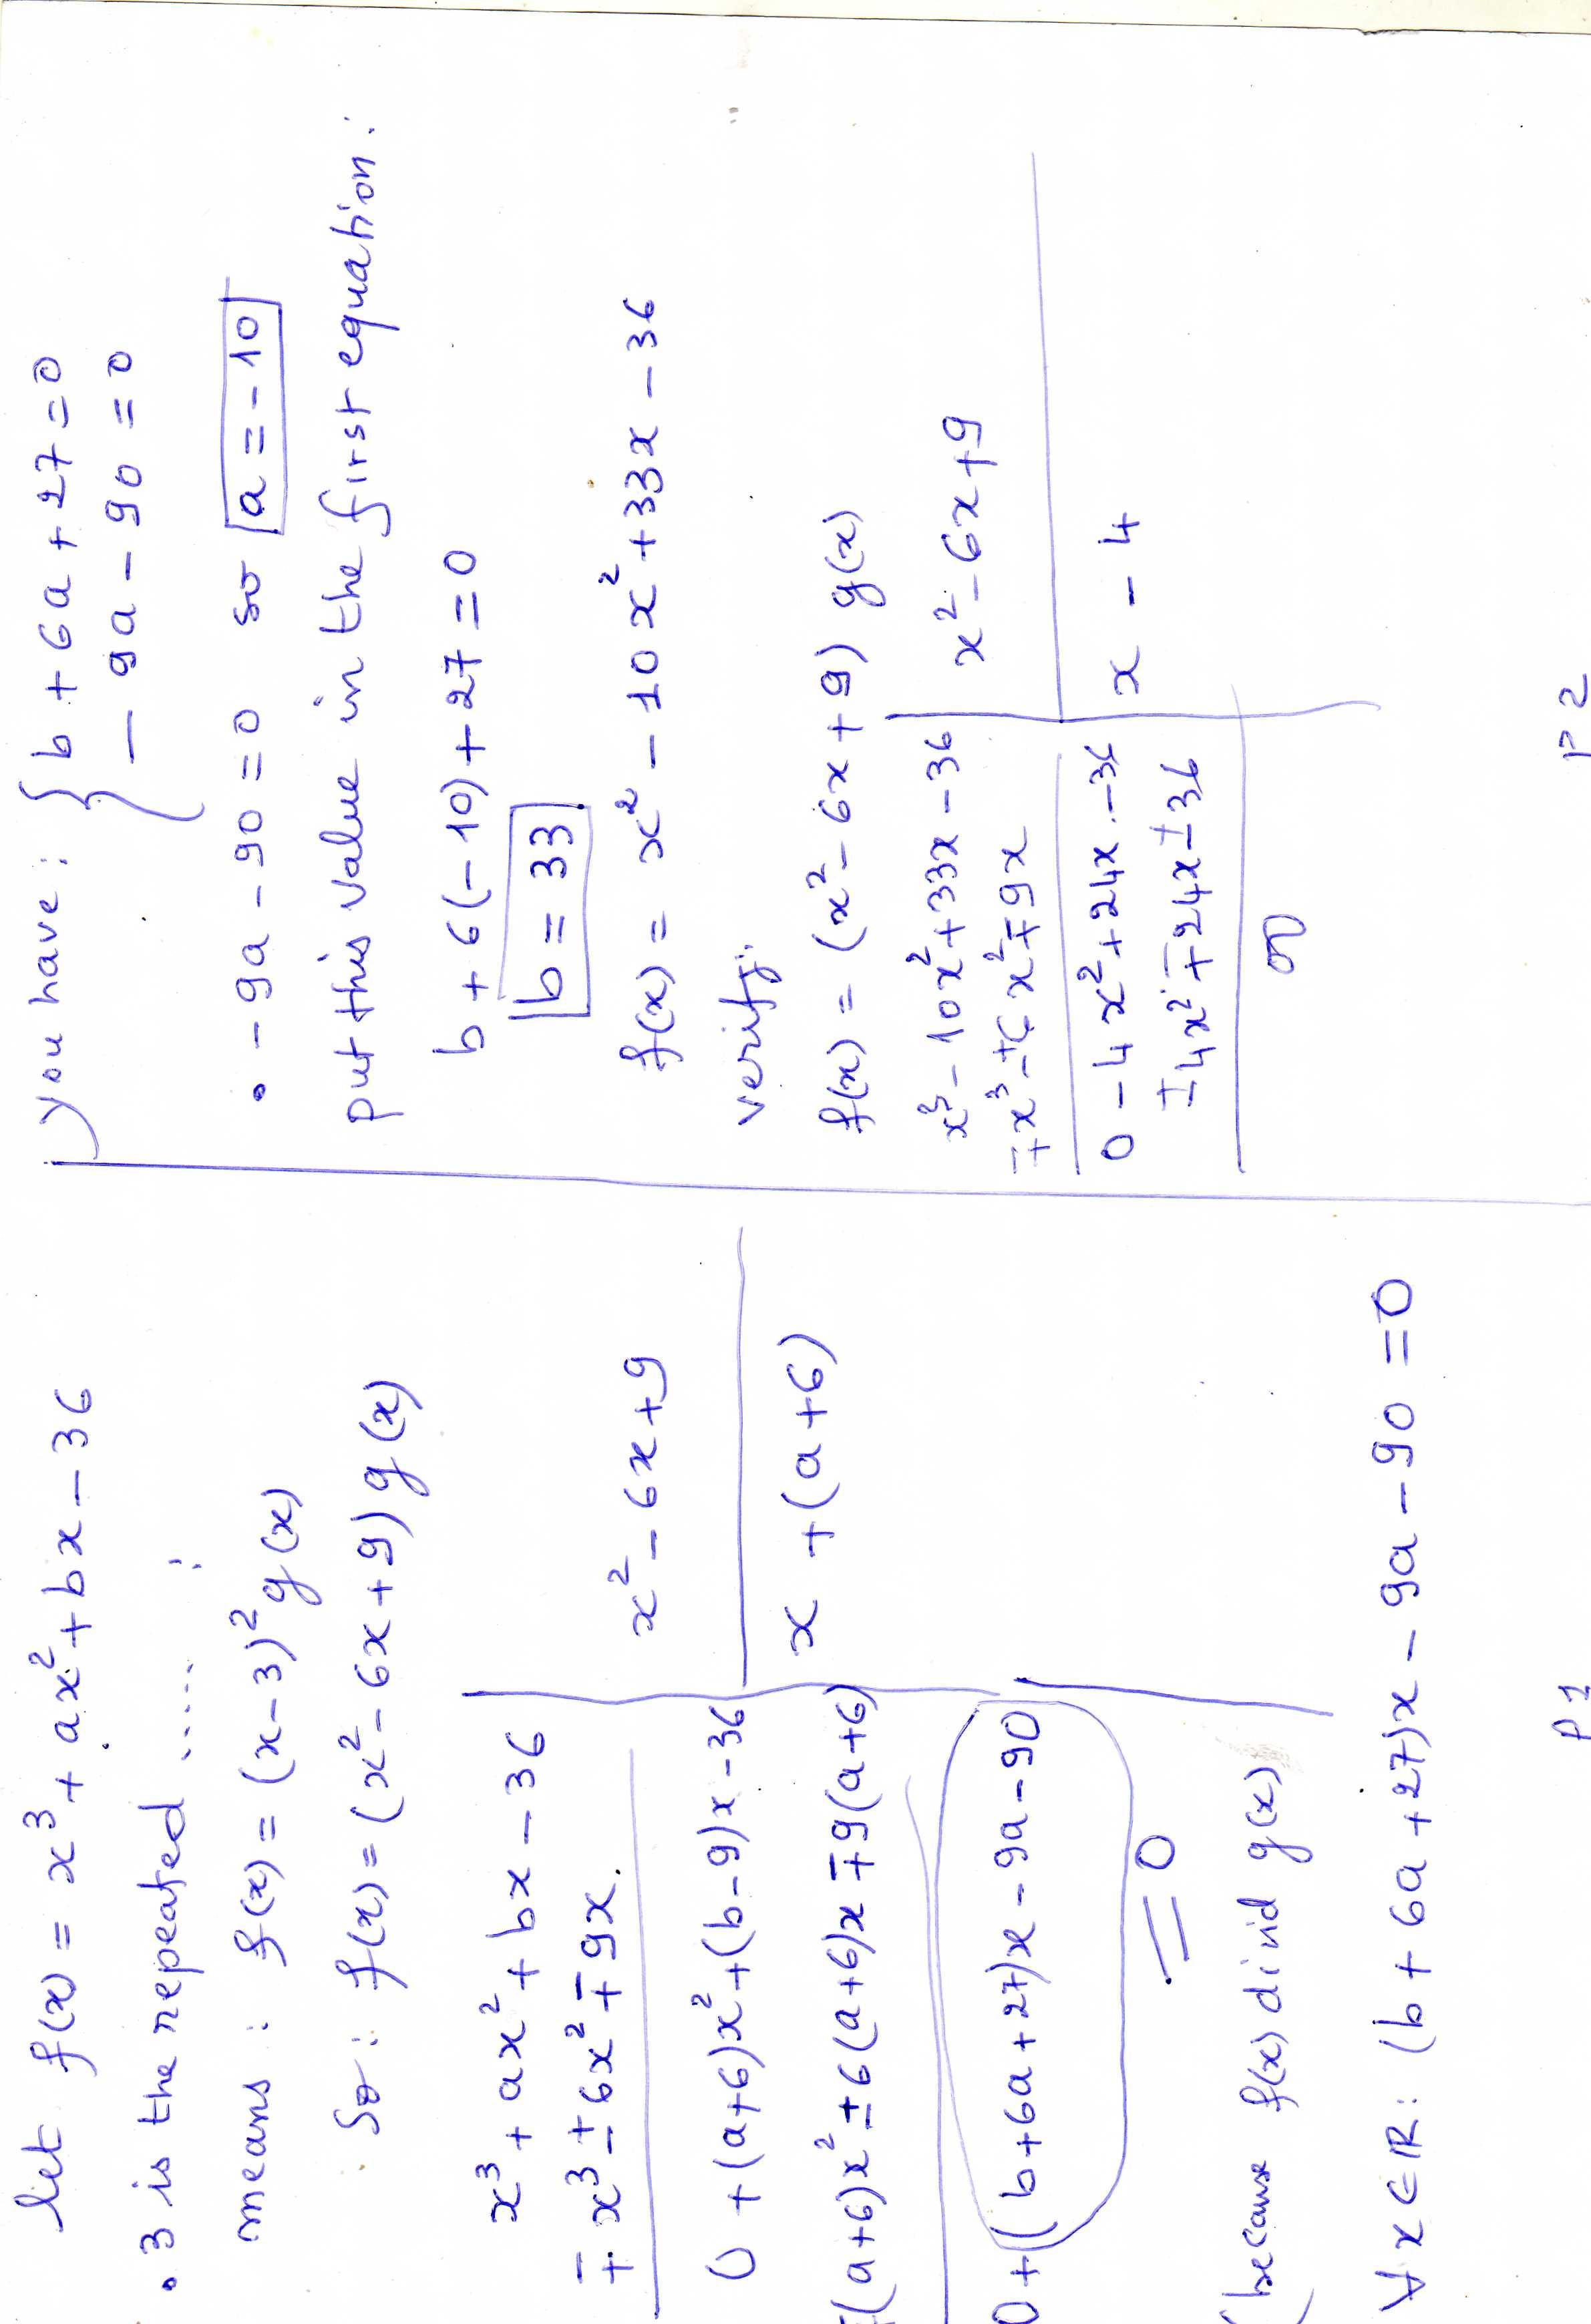 let f(x) = x³ + ax² + bx - 36
• 3 is the repeated ..... :
means : f(x) = (x-3)² g(x)
so : f(x) = (x² - 6x + 9) g(x)
x³ + ax² + bx - 36 | x² - 6x + 9
∓ x³ ± 6x² ∓ 9x. | x + (a+6)
0 + (a+6)x² + (b-9)x - 36
∓(a+6)x² ± 6(a+6)x ∓ 9(a+6)
0 + (b+6a+27)x - 9a - 90
= 0
(because f(x) divid g(x)
∀ x ∈ IR : (b + 6a + 27)x - 9a - 90 = 0
P 1
you have : { b + 6a + 27 = 0
- 9a - 90 = 0
• -9a - 90 = 0 so a = -10
put this value in the first equation :
b + 6(-10) + 27 = 0
b = 33
f(x) = x² - 10x² + 33x - 36
verify:
f(x) = (x² - 6x + 9) g(x)
x³ - 10x² + 33x - 36 | x² - 6x + 9
∓ x³ ± 6x² ∓ 9x | x - 4
0 - 4x² + 24x - 36
± 4x² ∓ 24x ± 36
00
P 2